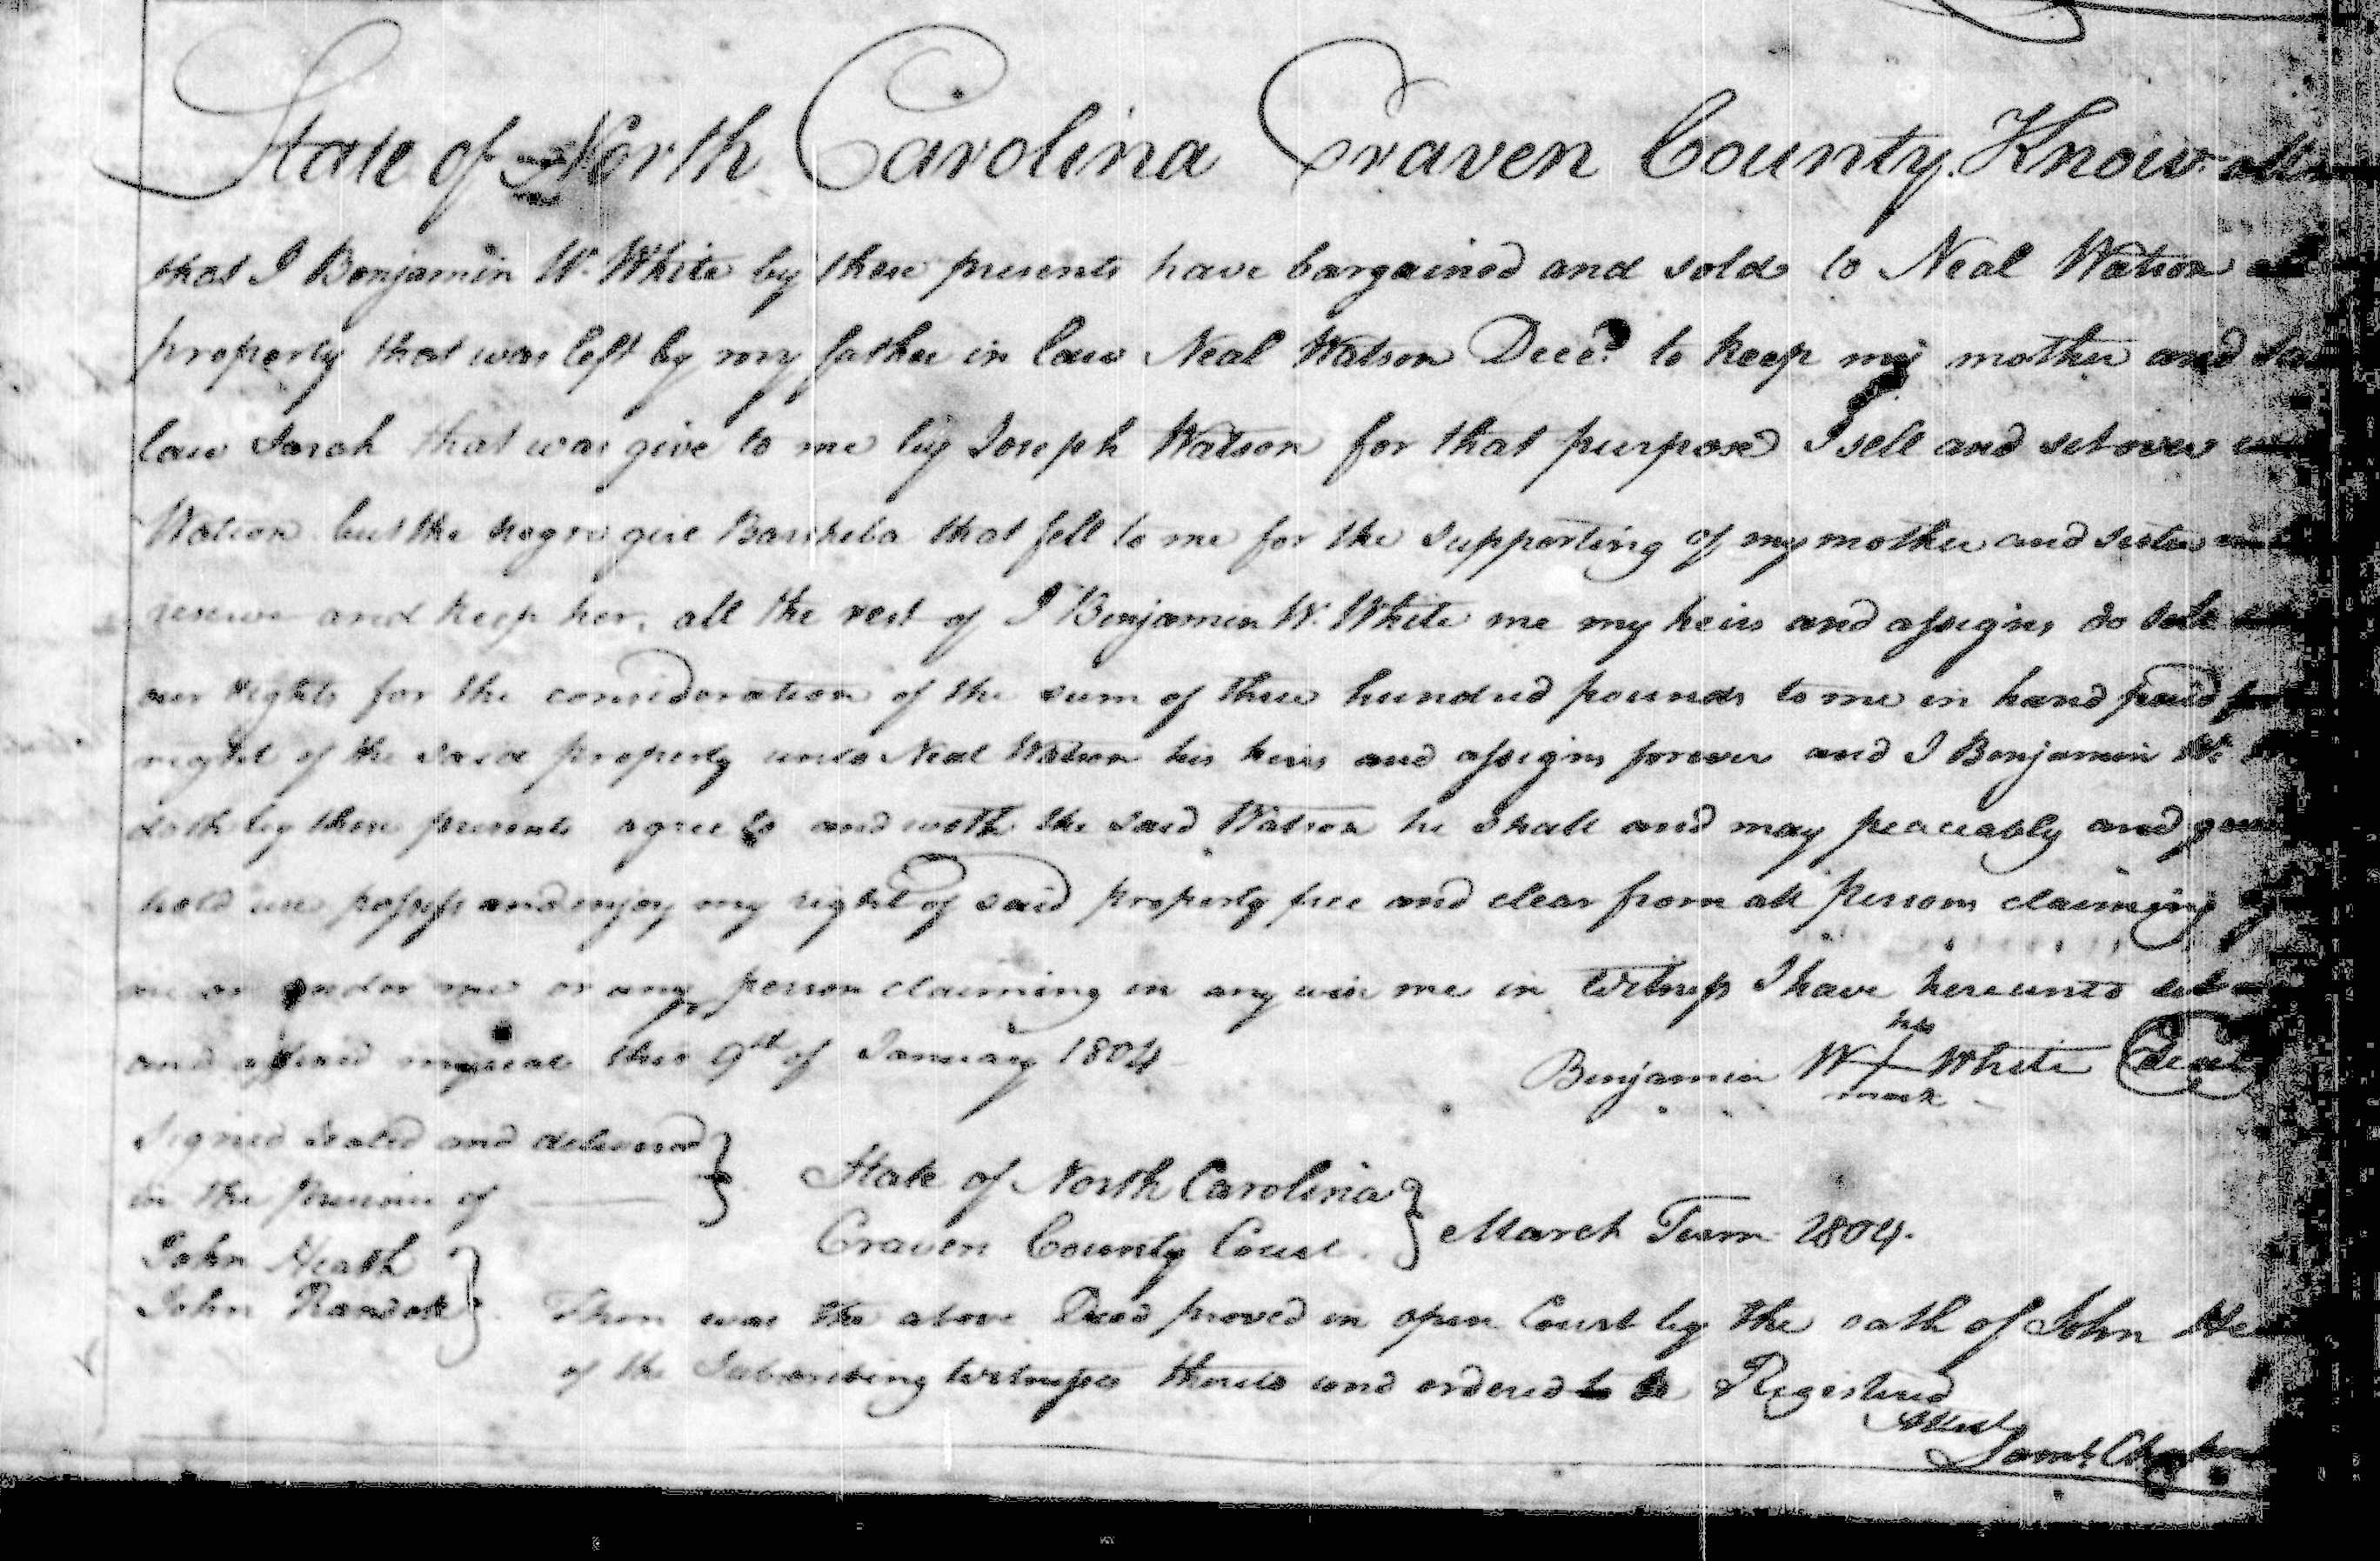 State of North Carolina Craven County. Know all
that I Benjamin W. White by these presents have bargained and sold to Neal Watson
property that was left by my father in law Neal Watson Decd. to keep my mother and
law Sarah that was give to me by Joseph Watson for that purpose I sell and set over
Watson but the negro girl Barsheba that fell to me for the supporting of my mother and sister
reserve and keep her, all the rest of I Benjamin W. White me my heirs and assigns do sell
our rights for the consideration of the sum of three hundred pounds to me in hand paid for
right of the said property unto Neal Watson his heirs and assigns forever and I Benjamin W.
doth by these presents agree to and with the said Watson he shall and may peaceably and
hold use possess and enjoy my right of said property free and clear from all persons claiming
me or under me or any person claiming in any wise me in Witness I have hereunto set
and affixed my seal this 9th of January 1804
Benjamin W his X mark White Seal
Signed Sealed and delivered
in the presence of
John Heath
John
State of North Carolina
Craven County Court.
March Term 1804.
Then was the above Deed proved in open Court by the oath of John He
of the Subscribing Witnesses thereto and ordered to be Registered
Attest
Saml. Chapman